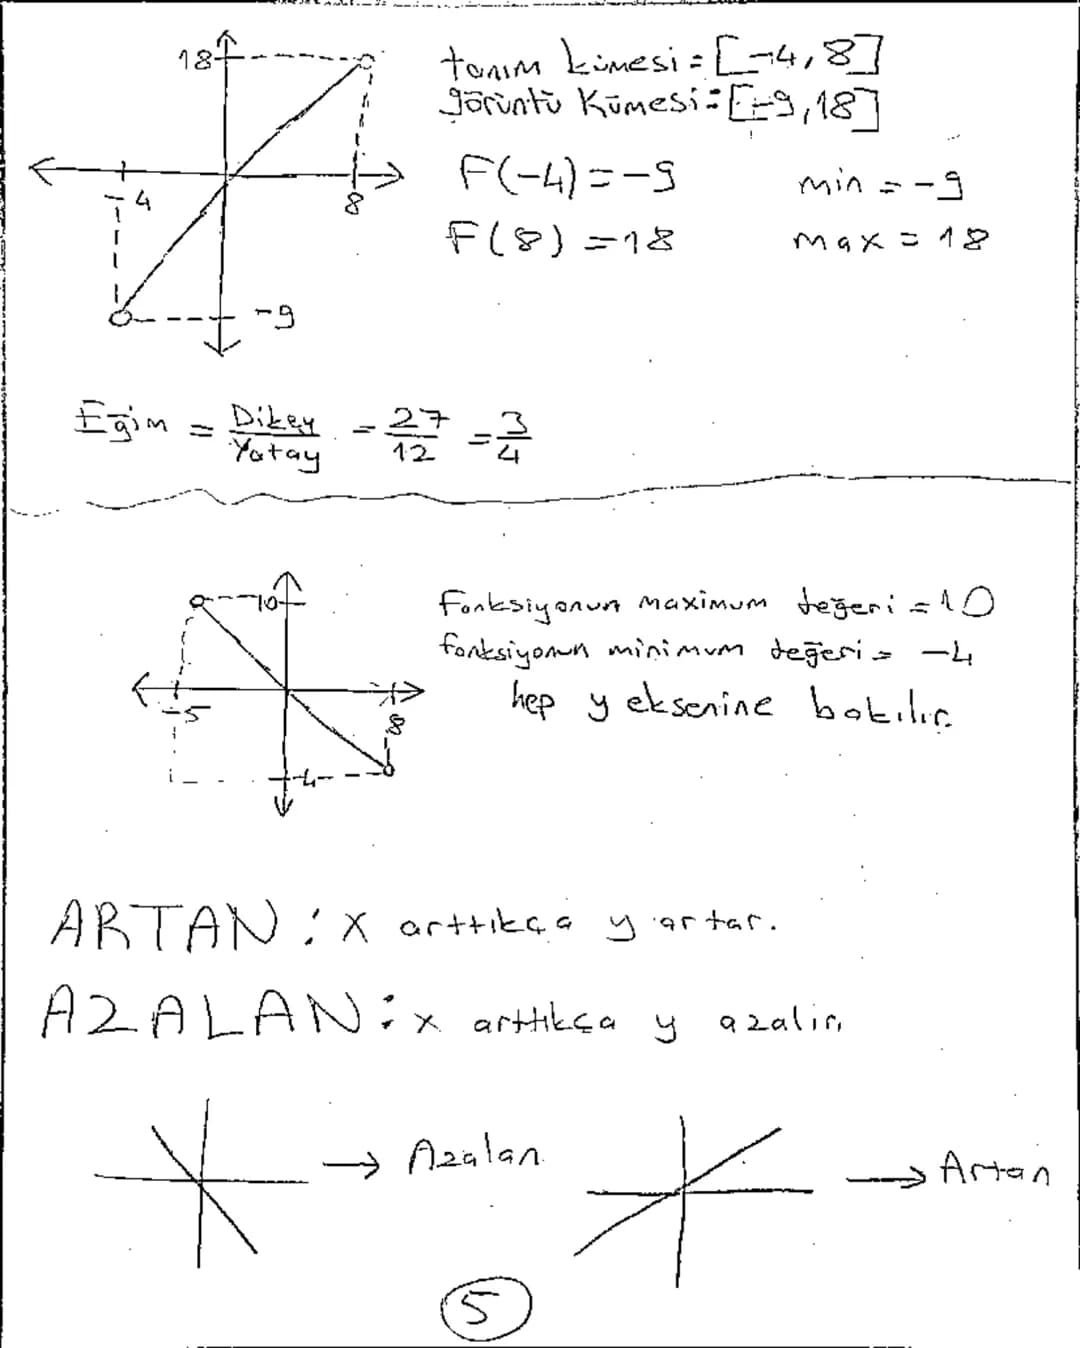 18
tanım kümesi = [-4, 8]
görüntü Kümesi = [-9, 18]
-4
8
F(-4) = -9
min = -9
F(8) = 18
max = 18
-9
Eğim = Dikey / Yatay = 27 / 12 = 3 / 4
10
Fonksiyonun maximum değeri = 10
fonksiyonun minimum değeri = -4
-5
8
hep y eksenine bakılır.
-4
ARTAN : x arttıkça y artar.
AZALAN : x arttıkça y azalır.
→ Azalan
→ Artan
5